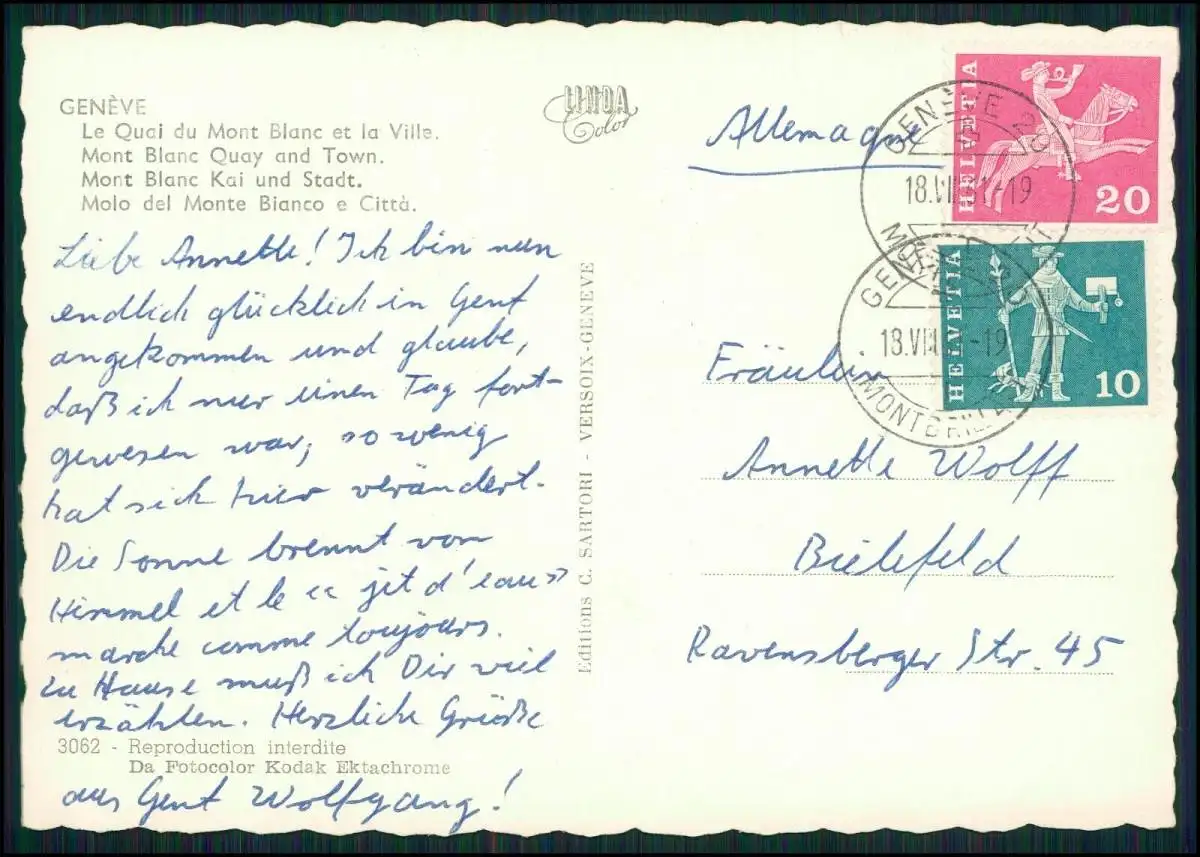 GENÈVE
Le Quai du Mont Blanc et la Ville.
Mont Blanc Quay and Town.
Mont Blanc Kai und Stadt.
Molo del Monte Bianco e Città.
LINDA
Color
Liebe Annette! Ich bin nun
endlich glücklich in Genf
angekommen und glaube,
daß ich nur einen Tag fort-
gewesen war, so wenig
hat sich hier verändert.
Die Sonne brennt vom
Himmel et le « jet d'eau »
marche comme toujours.
Zu Hause muß ich Dir viel
erzählen. Herzliche Grüße
3062 - Reproduction interdite
Da Fotocolor Kodak Ektachrome
aus Genf Wolfgang!
Editions C. SARTORI - VERSOIX-GENEVE
Allemagne
HELVETIA
20
GENÈVE 2
18.VII.61-19
HELVETIA
10
GENÈVE 2
18.VII -19
MONTBRILLANT
Fräulein
Annette Wolff
Bielefeld
Ravensberger Str. 45